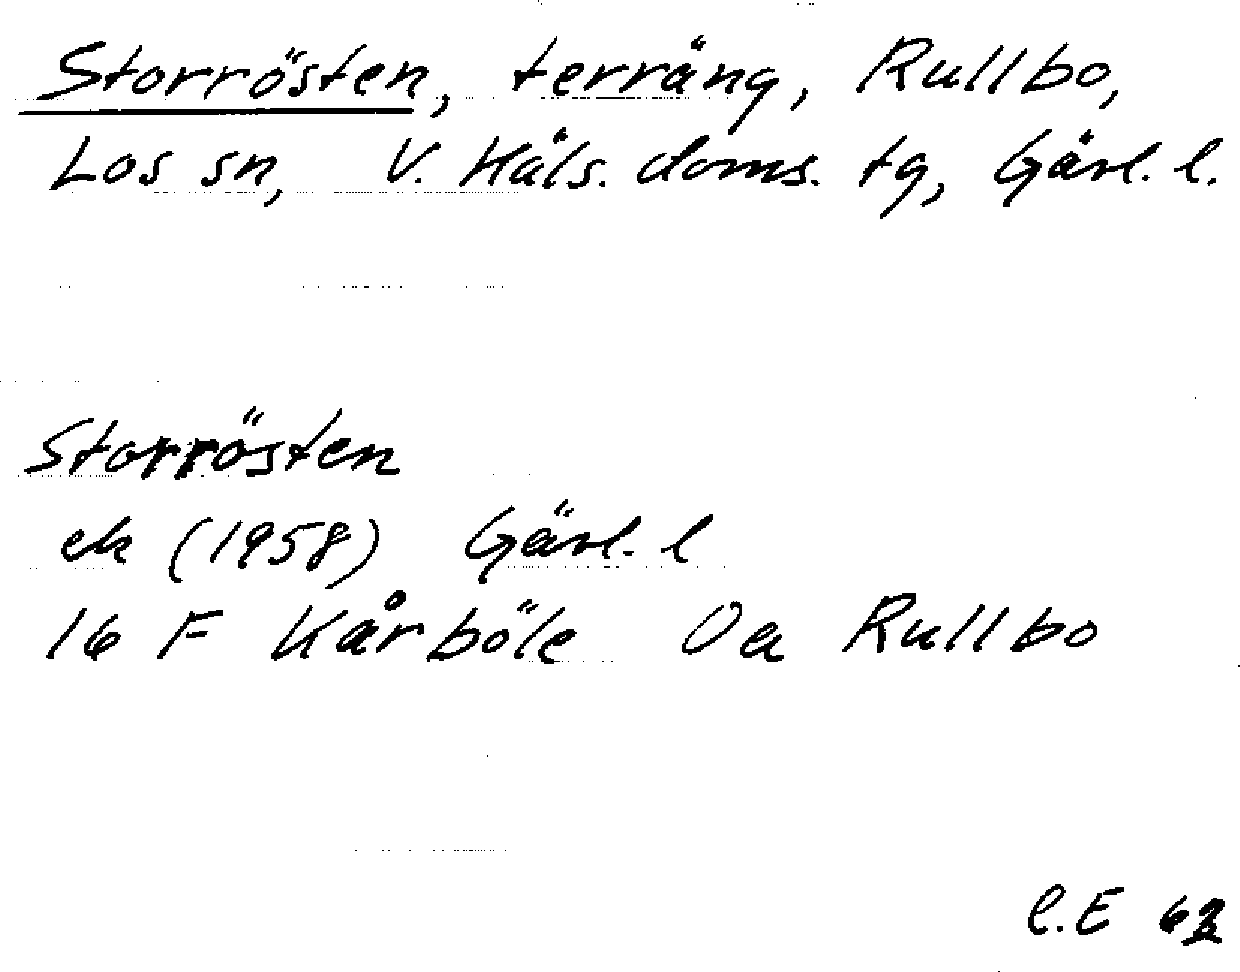 Storrösten, terräng, Rullbo,
Los sn, V. Häls. doms. tg, Gävl. l.
Storrösten
ek (1958) Gävl. l
16 F Kårböle 0a Rullbo
C.E 62